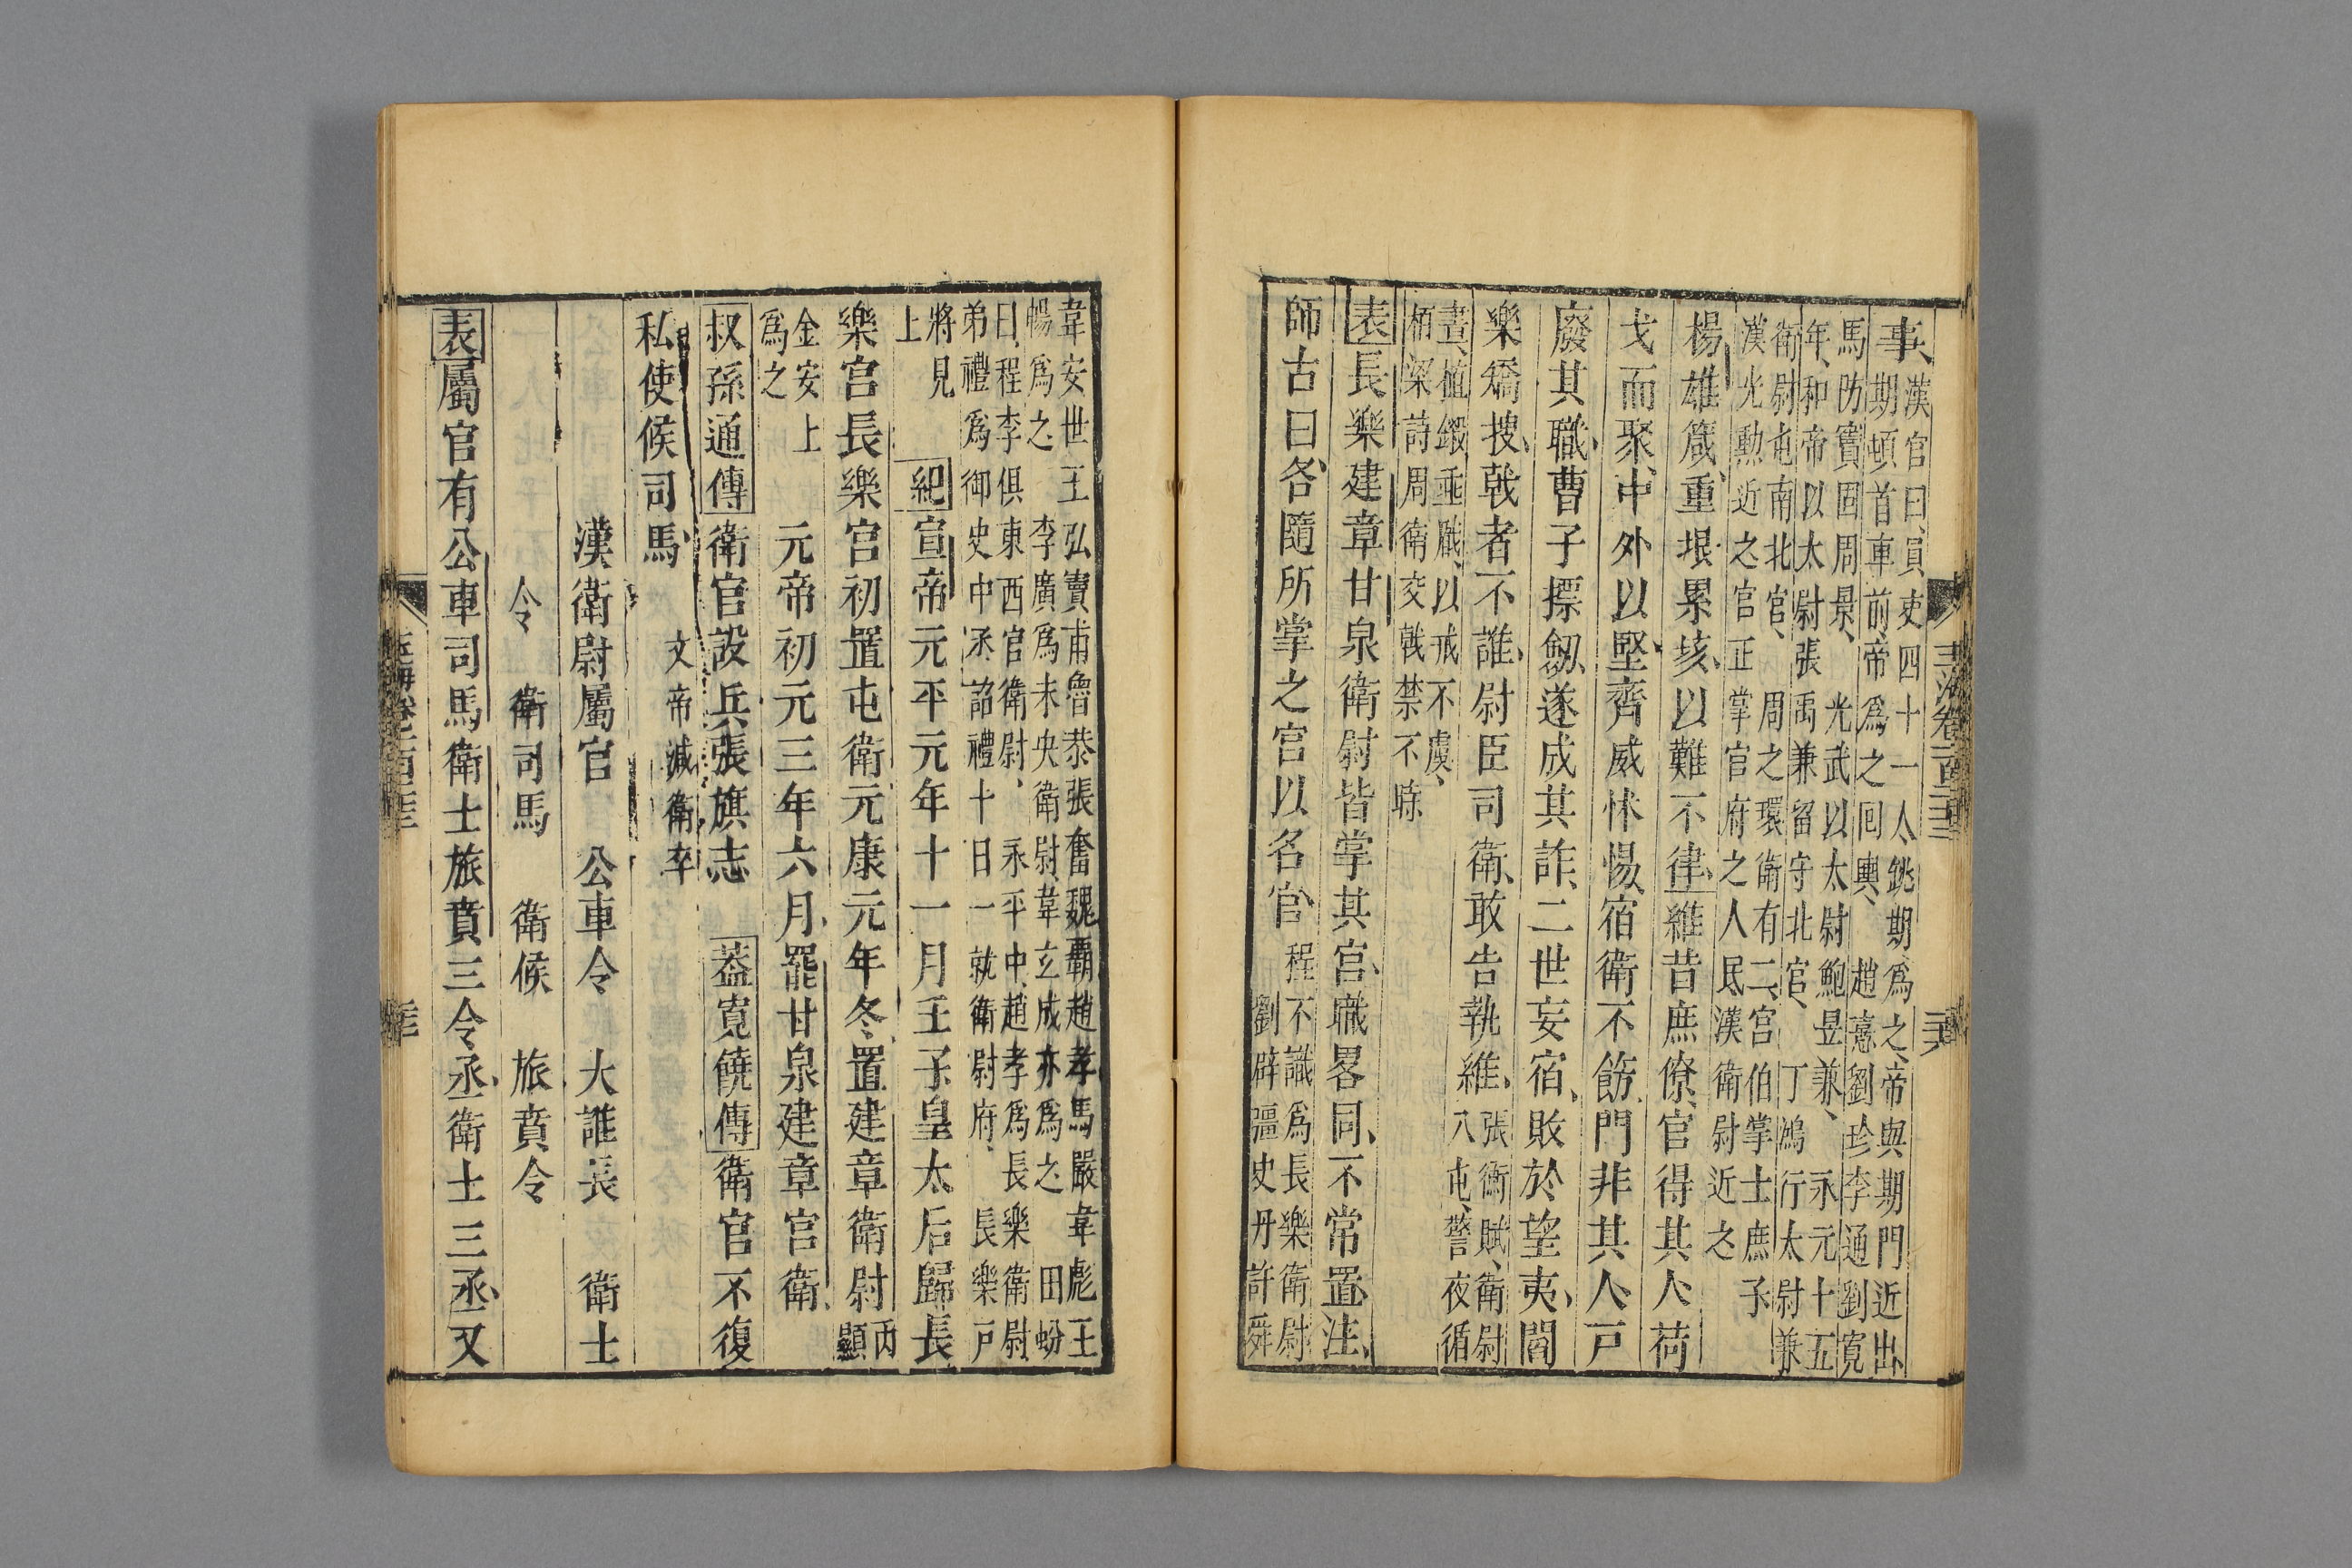 事漢官曰員吏四十一人銚期為之帝與期門近出
期頓首車前帝為之回輿 趙憙劉珍李通劉寬
馬防竇固周景 光武以太尉鮑昱兼 永元十五
年和帝以太尉張禹兼留守北宫 丁鴻行太尉兼
衛尉屯南北宫 周之環衛有二宫伯掌士庶子
漢光勲近之宫正掌官府之人民漢衛尉近之
楊雄箴重垠累垓以難不律維昔庶僚官得其人荷
戈而聚中外以堅齊威怵惕宿衛不飭門非其人戸
廢其職曹子摽劔遂成其詐二世妄宿敗於望夷閻
樂矯搜戟者不誰尉臣司衛敢告執維張衡賦衛尉
八屯警夜循
晝植鍜垂瞂以戒不虞
栢梁詩周衛交戟禁不時
表長樂建章甘泉衛尉皆掌其宫職畧同不常置注
師古曰各隨所掌之宫以名官程不識為長樂衛尉
劉辟彊史丹許舜
韋安世王弘竇甫魯恭張奮魏霸趙孝馬嚴韋彪王
暢為之 李廣為未央衛尉韋玄成亦為之 田蚡
曰程李俱東西宫衛尉 永平中趙孝為長樂衛尉
弟禮為御史中丞詔禮十日一就衛尉府 長樂戸
將見
上
紀宣帝元平元年十一月壬子皇太后歸長
樂宫長樂宫初置屯衛元康元年冬置建章衛尉丙
顯
金安上
為之
元帝初元三年六月罷甘泉建章宫衛
叔孫通傳衛官設兵張旗志 蓋寛饒傳衛官不復
私使候司馬 文帝減衛卒
漢衛尉屬官 公車令 大誰長 衛士
令 衛司馬 衛候 旅賁令
表屬官有公車司馬衛士旅賁三令丞衛士三丞又